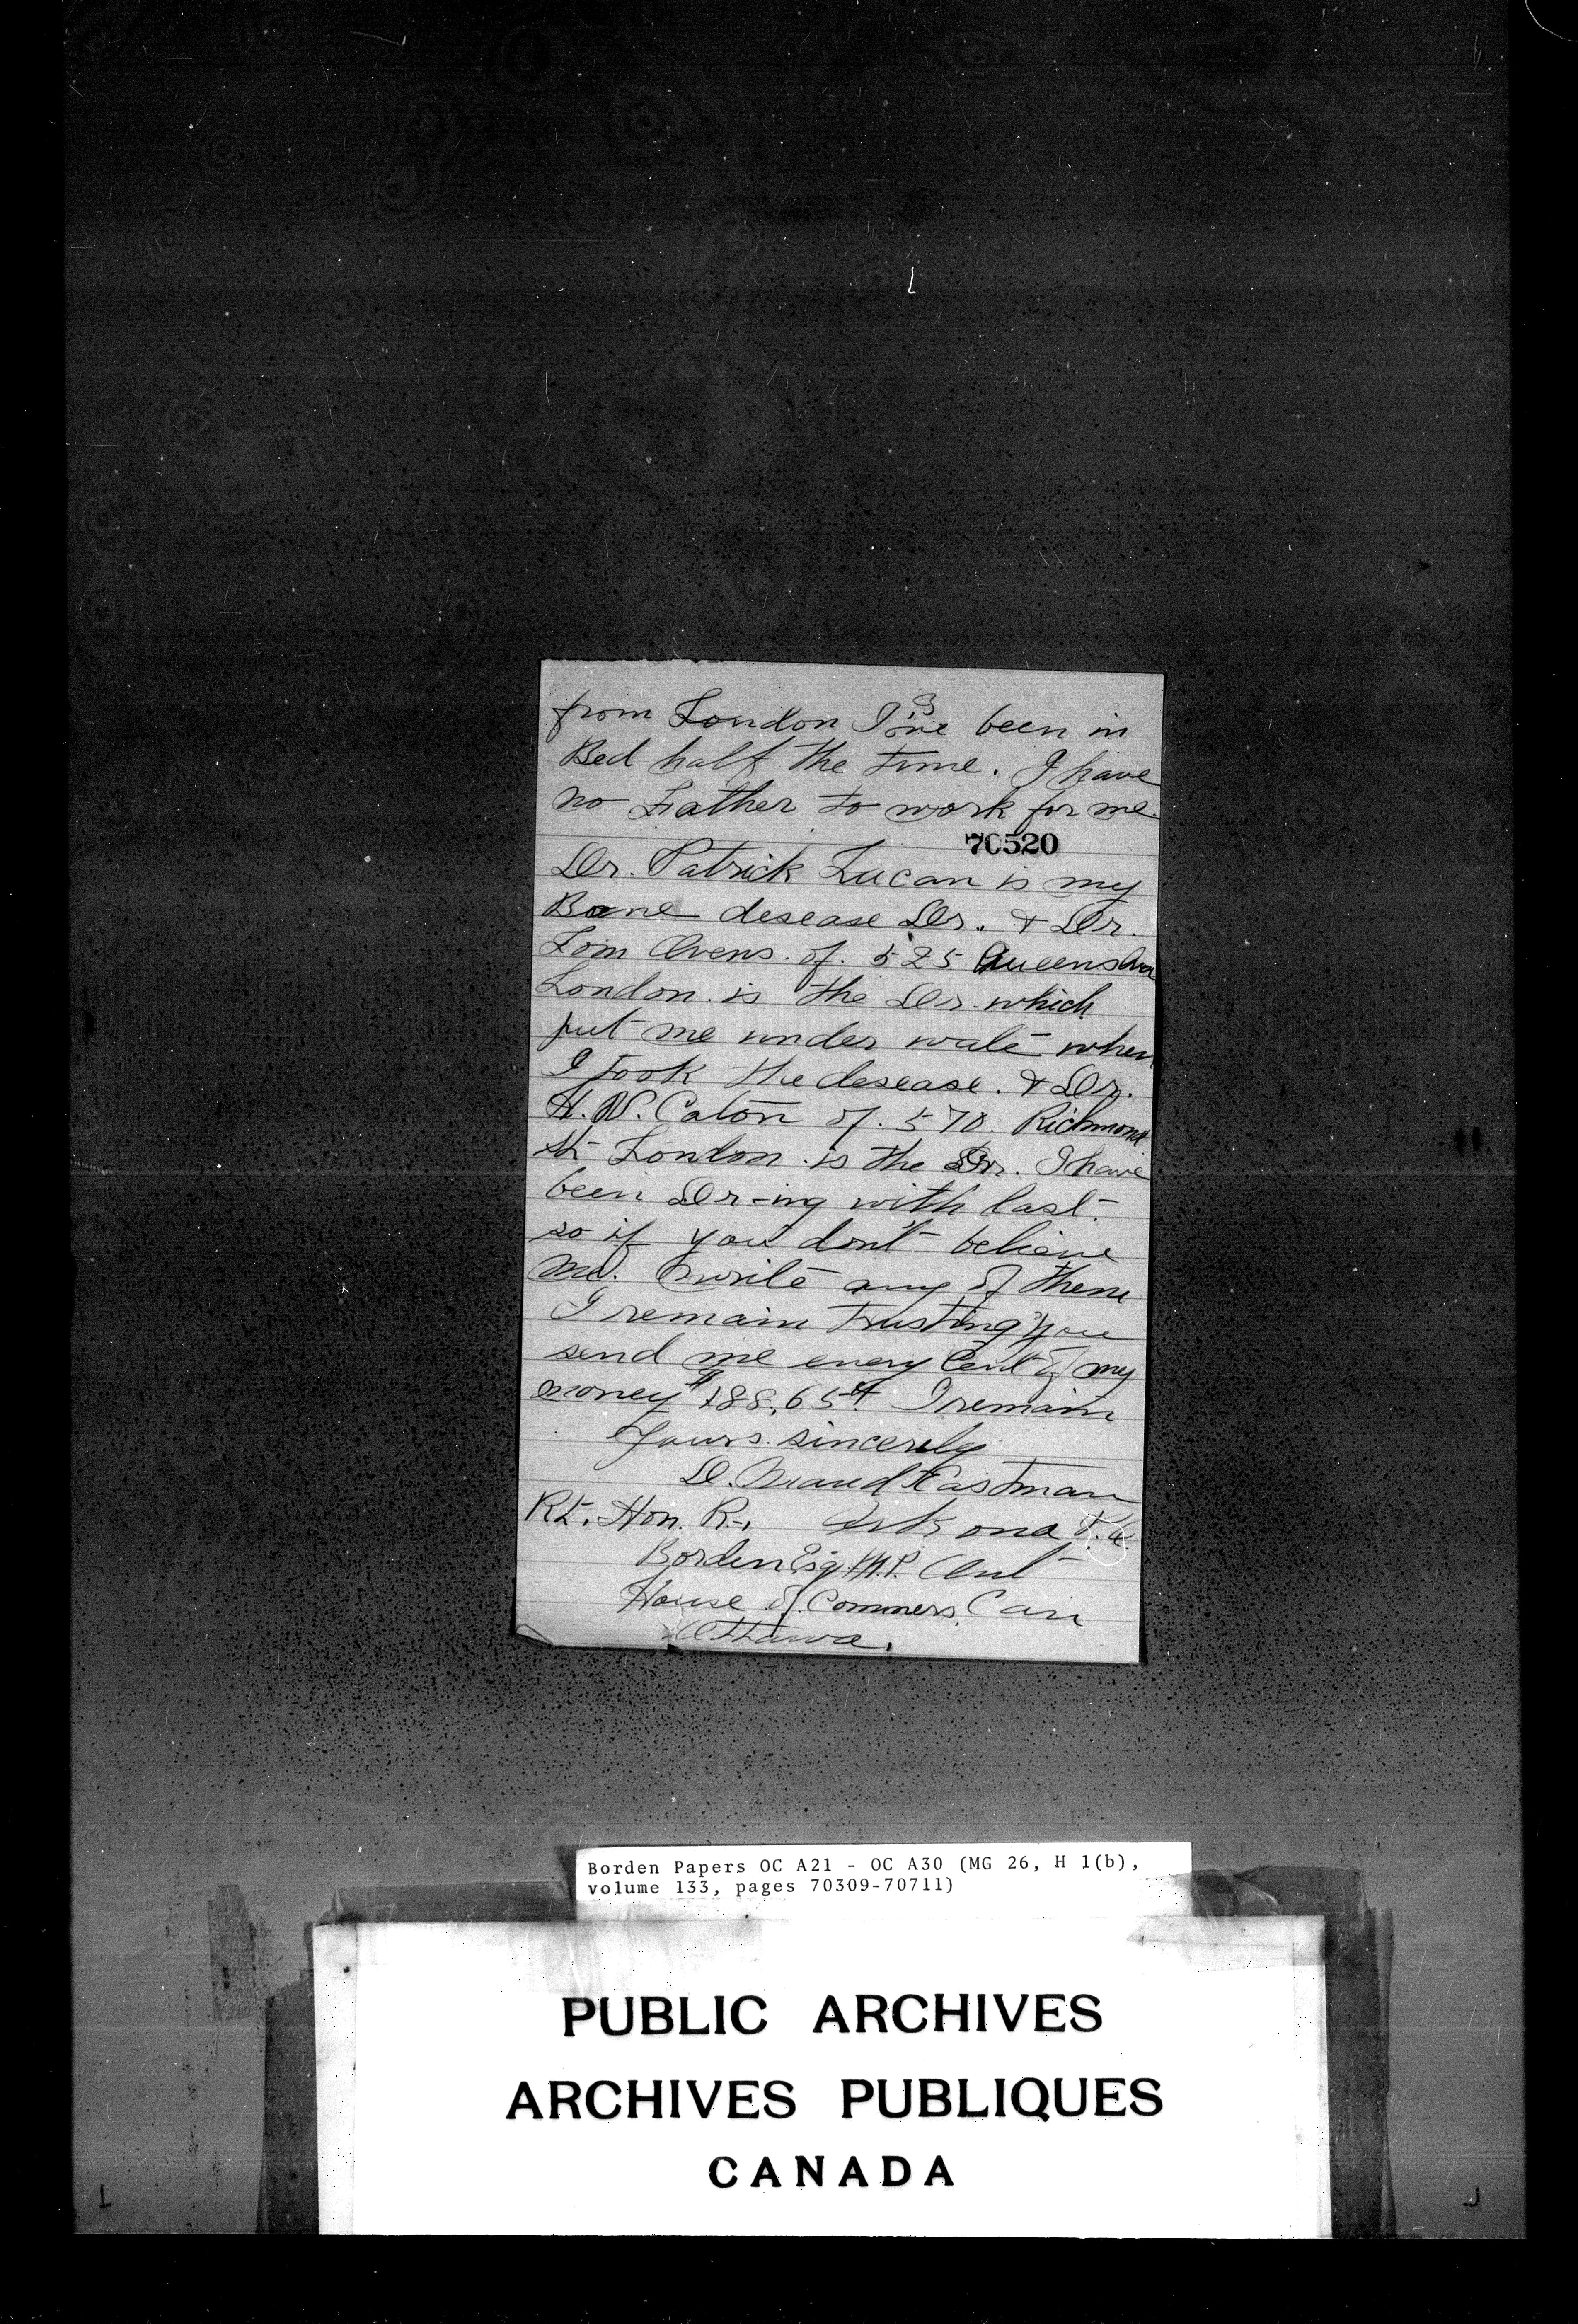 3
from London I've been in
Bed half the time. I have
no Father to work for me.
70520
Dr. Patrick Lucan is my
Bone desease Dr. & Dr.
Tom Ovens. of. 525 Queens Ave
London. is the Dr. which
put me under wate when
I took the desease. & Dr.
H. W. Caton of. 570. Richmond
St London. is the Dr. I have
been Dr-ing with last.
so if you don't believe
me. write any of them
I remain trusting you
send me every Cent of my
money $188.65 I remain
Yours sincerely
D. Maud Eastman
Rt. Hon. R., Arkona P.O.
Borden Esq M.P. Ont
House of Commers. Can
Ottawa.
Borden Papers OC A21 - OC A30 (MG 26, H 1(b),
volume 133, pages 70309-70711)
PUBLIC ARCHIVES
ARCHIVES PUBLIQUES
CANADA